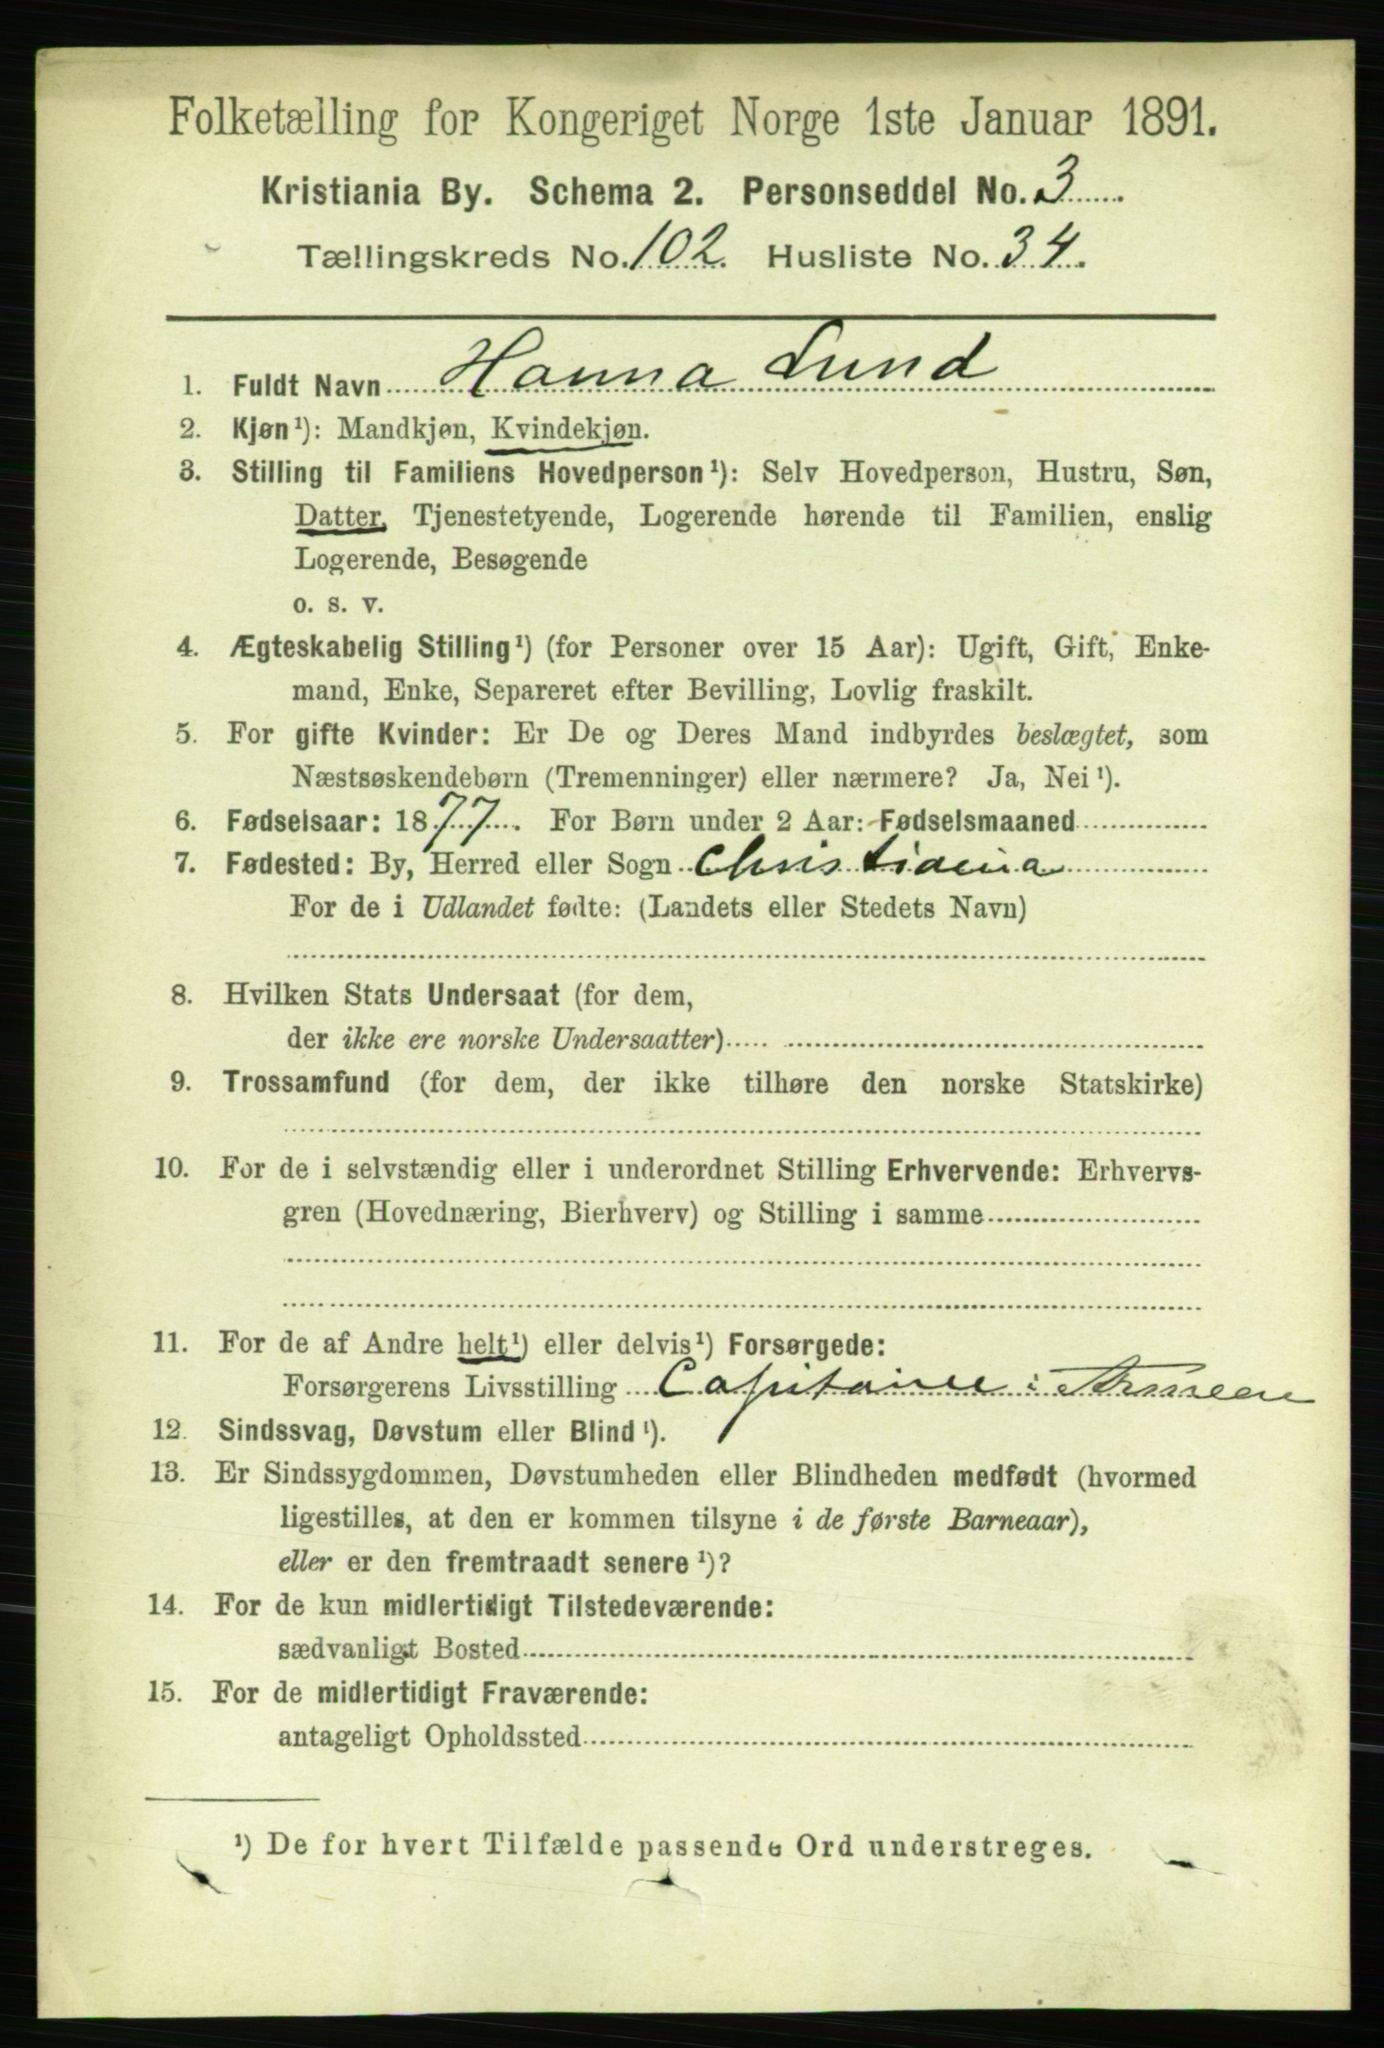 Folketælling for Kongeriget Norge 1ste Januar 1891.
Kristiania By. Schema 2. Personseddel No. 3
Tællingskreds No. 102. Husliste No. 34.
1. Fuldt Navn Hanna Lund
2. Kjøn¹): Mandkjøn, Kvindekjøn.
3. Stilling til Familiens Hovedperson¹): Selv Hovedperson, Hustru, Søn,
Datter, Tjenestetyende, Logerende hørende til Familien, enslig
Logerende, Besøgende
o. s. v.
4. Ægteskabelig Stilling¹) (for Personer over 15 Aar): Ugift, Gift, Enke-
mand, Enke, Separeret efter Bevilling, Lovlig fraskilt.
5. For gifte Kvinder: Er De og Deres Mand indbyrdes beslægtet, som
Næstsøskendebørn (Tremenninger) eller nærmere? Ja, Nei¹).
6. Fødselsaar: 1877. For Børn under 2 Aar: Fødselsmaaned
7. Fødested: By, Herred eller Sogn Christiania
For de i Udlandet fødte: (Landets eller Stedets Navn)
8. Hvilken Stats Undersaat (for dem,
der ikke ere norske Undersaatter)
9. Trossamfund (for dem, der ikke tilhøre den norske Statskirke)
10. For de i selvstændig eller i underordnet Stilling Erhvervende: Erhvervs-
gren (Hovednæring, Bierhverv) og Stilling i samme
11. For de af Andre helt¹) eller delvis¹) Forsørgede:
Forsørgerens Livsstilling Capitaine i Armeen
12. Sindssvag, Døvstum eller Blind¹).
13. Er Sindssygdommen, Døvstumheden eller Blindheden medfødt (hvormed
ligestilles, at den er kommen tilsyne i de første Barneaar),
eller er den fremtraadt senere¹)?
14. For de kun midlertidigt Tilstedeværende:
sædvanligt Bosted
15. For de midlertidigt Fraværende:
antageligt Opholdssted
¹) De for hvert Tilfælde passende Ord understreges.